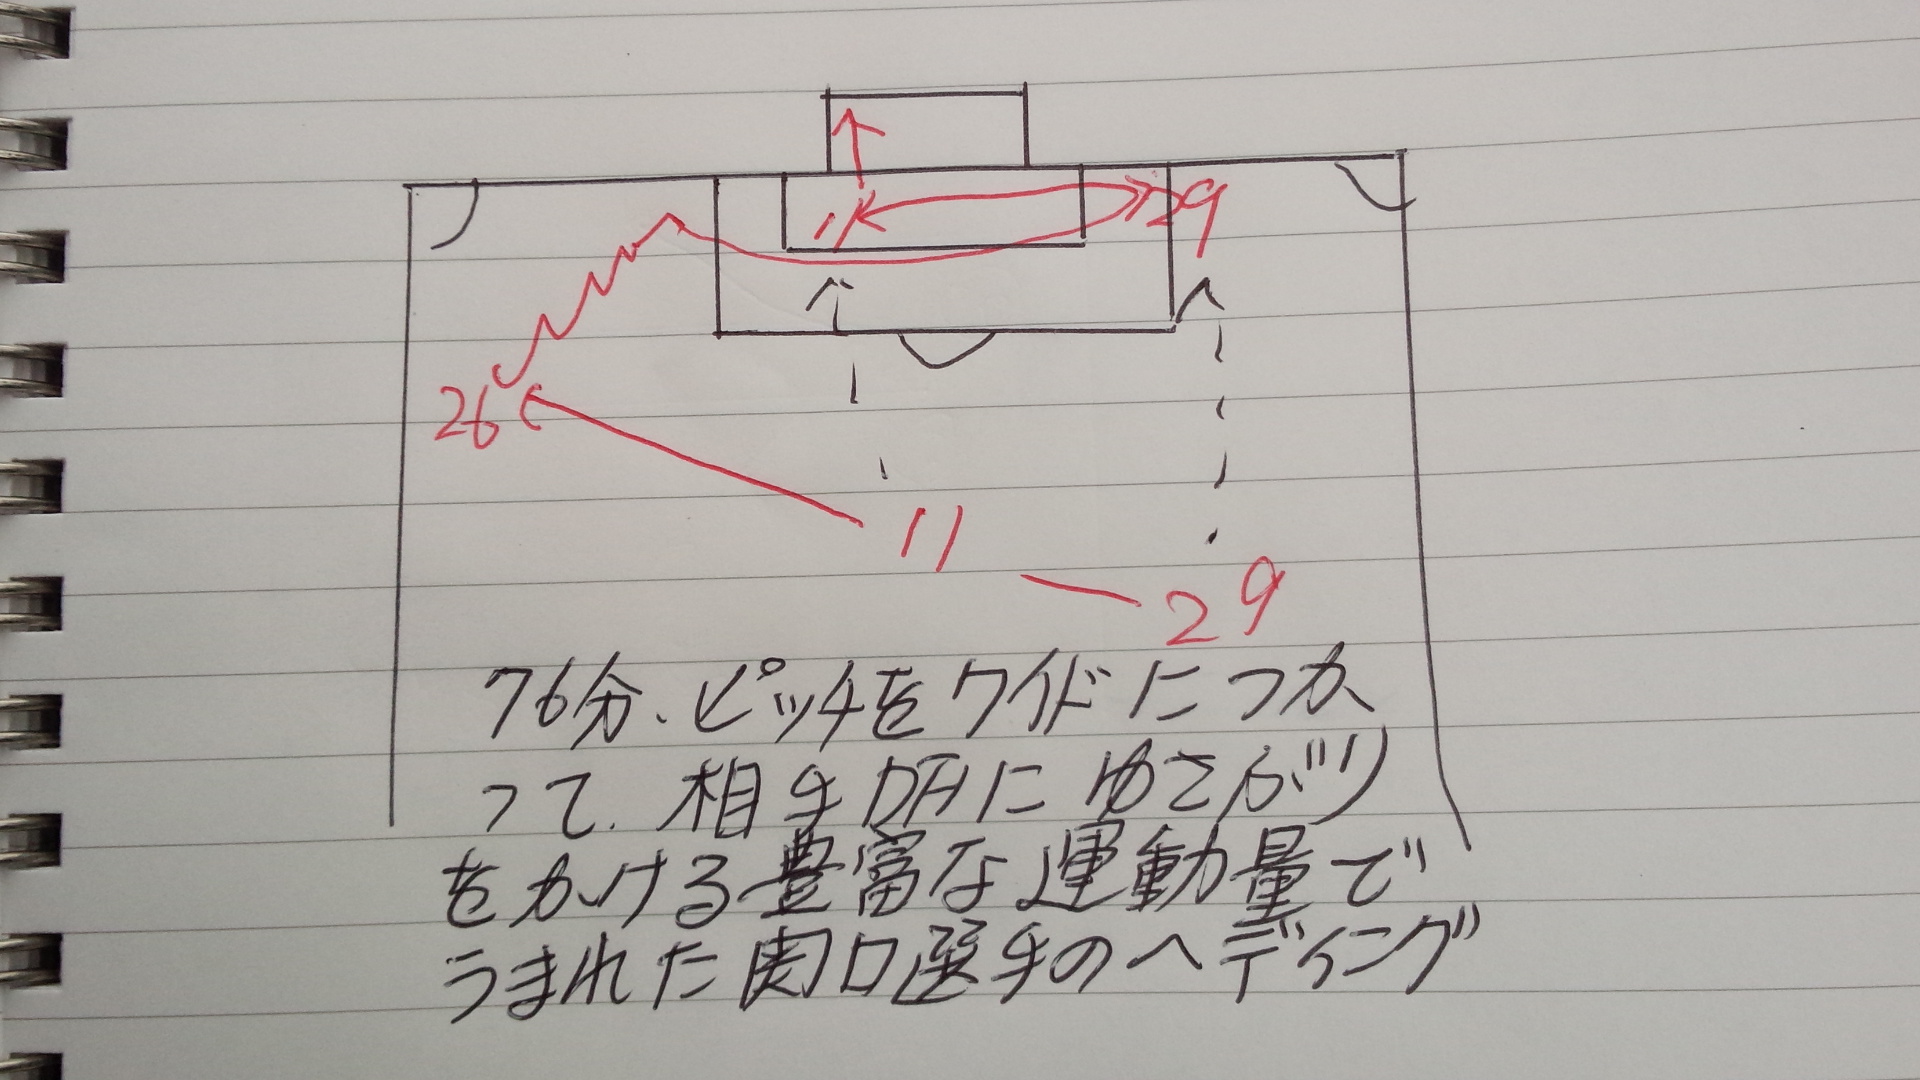 11 29
26
11
29
76分、ピッチをワイドにつか
って、相手DFにゆさぶり
をかける豊富な運動量で
うまれた関口選手のヘディング